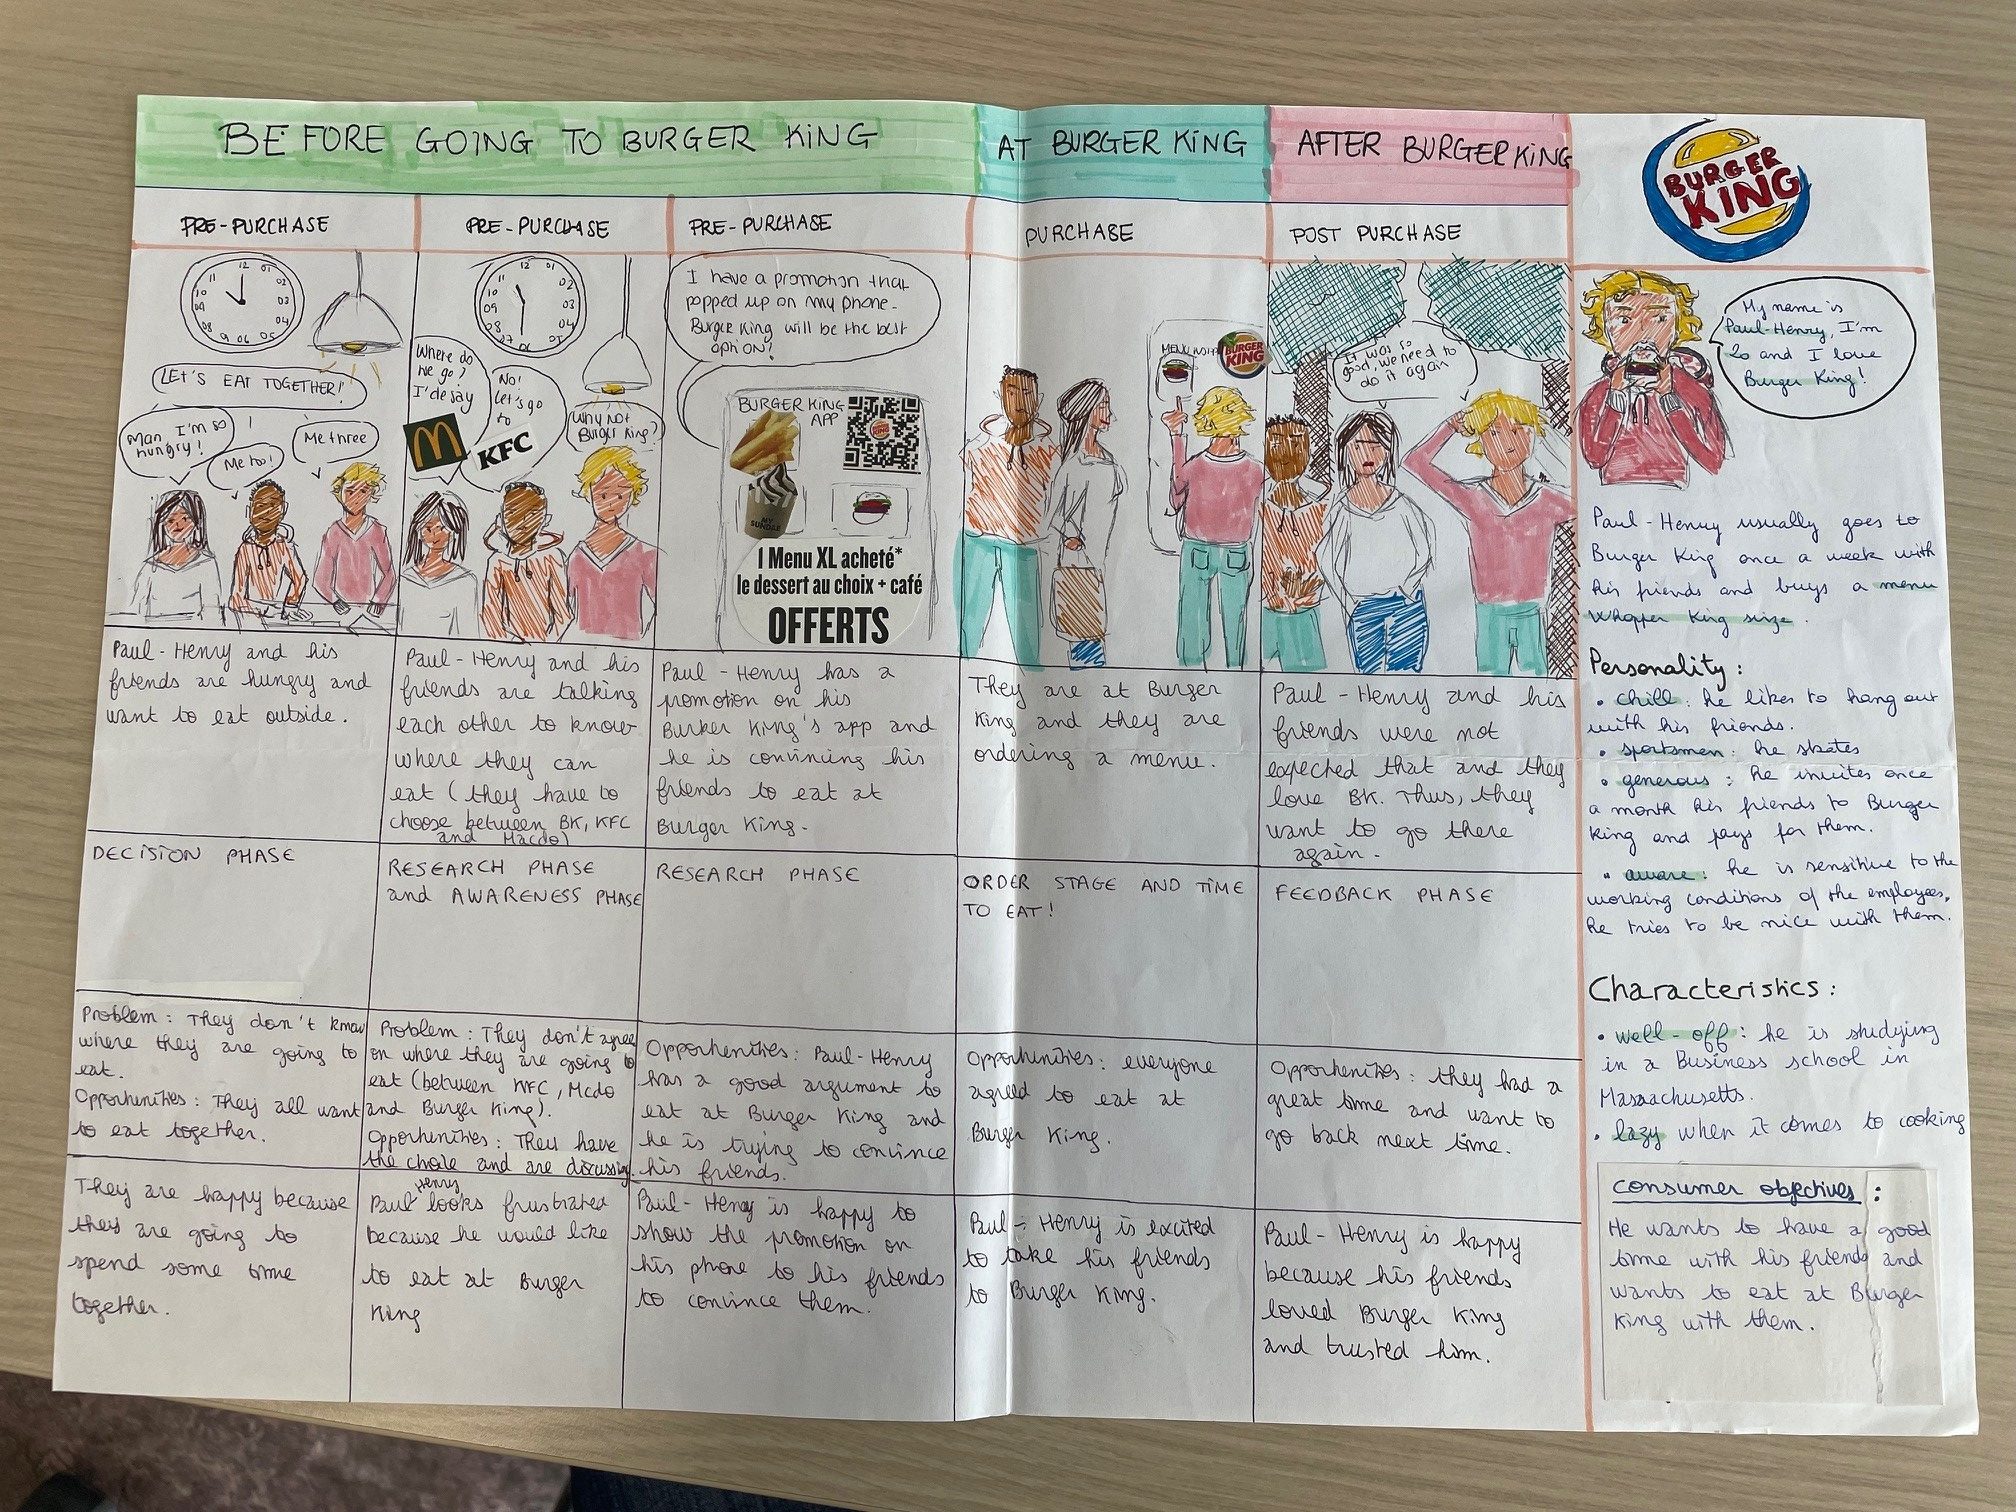 BEFORE GOING TO BURGER KING
AT BURGER KING
AFTER BURGER KING
BURGER
KING
PRE-PURCHASE
PRE-PURCHASE
PRE-PURCHASE
PURCHASE
POST PURCHASE
LET'S EAT TOGETHER!
Man, I'm so
hungry!
Me too!
Me three
Where do
we go?
I'de say
M
No!
Let's go
to
KFC
Why not
Burger King?
I have a promotion that
popped up on my phone.
Burger King will be the best
option?
BURGER KING
APP
MY
SUNDAE
1 Menu XL acheté*
le dessert au choix + café
OFFERTS
MENU
BURGER
KING
It was so
good, we need to
do it again
My name is
Paul-Henry, I'm
20 and I love
Burger King!
Paul-Henry and his
friends are hungry and
want to eat outside.
Paul-Henry and his
friends are talking
each other to know
where they can
eat (they have to
choose between BK, KFC
and Macdo)
Paul-Henry has a
promotion on his
Burker King's app and
he is convincing his
friends to eat at
Burger King.
They are at Burger
King and they are
ordering a menu.
Paul-Henry and his
friends were not
expected that and they
love BK. Thus, they
want to go there
again.
DECISION PHASE
RESEARCH PHASE
and AWARENESS PHASE
RESEARCH PHASE
ORDER STAGE AND TIME
TO EAT!
FEEDBACK PHASE
Problem: They don't know
where they are going to
eat.
Opportunities: They all want
to eat together.
Problem: They don't agree
on where they are going to
eat (between KFC, Mcdo
and Burger King).
Opportunities: They have
the choie and are discussing.
Opportunities: Paul-Henry
has a good argument to
eat at Burger King and
he is trying to convince
his friends.
Opportunities: everyone
agreed to eat at
Burger King.
Opportunities: they had a
great time and want to
go back next time.
They are happy because
they are going to
spend some time
together.
Paul Henry looks frustrated
because he would like
to eat at Burger
King
Paul-Henry is happy to
show the promotion on
his phone to his friends
to convince them.
Paul-Henry is excited
to take his friends
to Burger King.
Paul-Henry is happy
because his friends
loved Burger King
and trusted him.
Paul-Henry usually goes to
Burger King once a week with
his friends and buys a menu
Whopper King size.
Personality:
• chill: he likes to hang out
with his friends.
• sportsmen: he skates
• generous: he invites once
a month his friends to Burger
King and pays for them.
• aware: he is sensitive to the
working conditions of the employees,
he tries to be nice with them.
Characteristics:
• well-off: he is studying
in a Business school in
Massachusetts.
• lazy when it comes to cooking
consumer objectives:
He wants to have a good
time with his friends and
wants to eat at Burger
King with them.